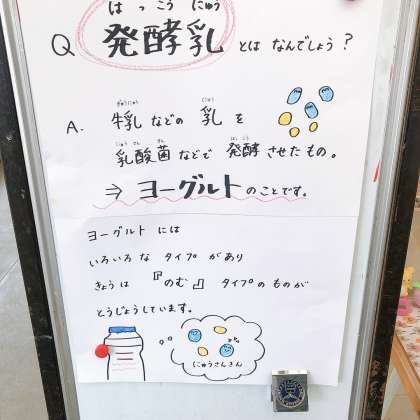 はっこう にゅう
Q 発酵乳 とは なんでしょう？
ぎゅうにゅう にゅう
A. 牛乳 などの 乳 を
にゅう さん きん はっ こう
乳酸菌 などで 発酵 させたもの。
⇒ ヨーグルト のことです。
ヨーグルト には
いろいろ な タイプ があり
きょうは 『のむ』 タイプの ものが
とうじょうしています。
にゅうさんきん